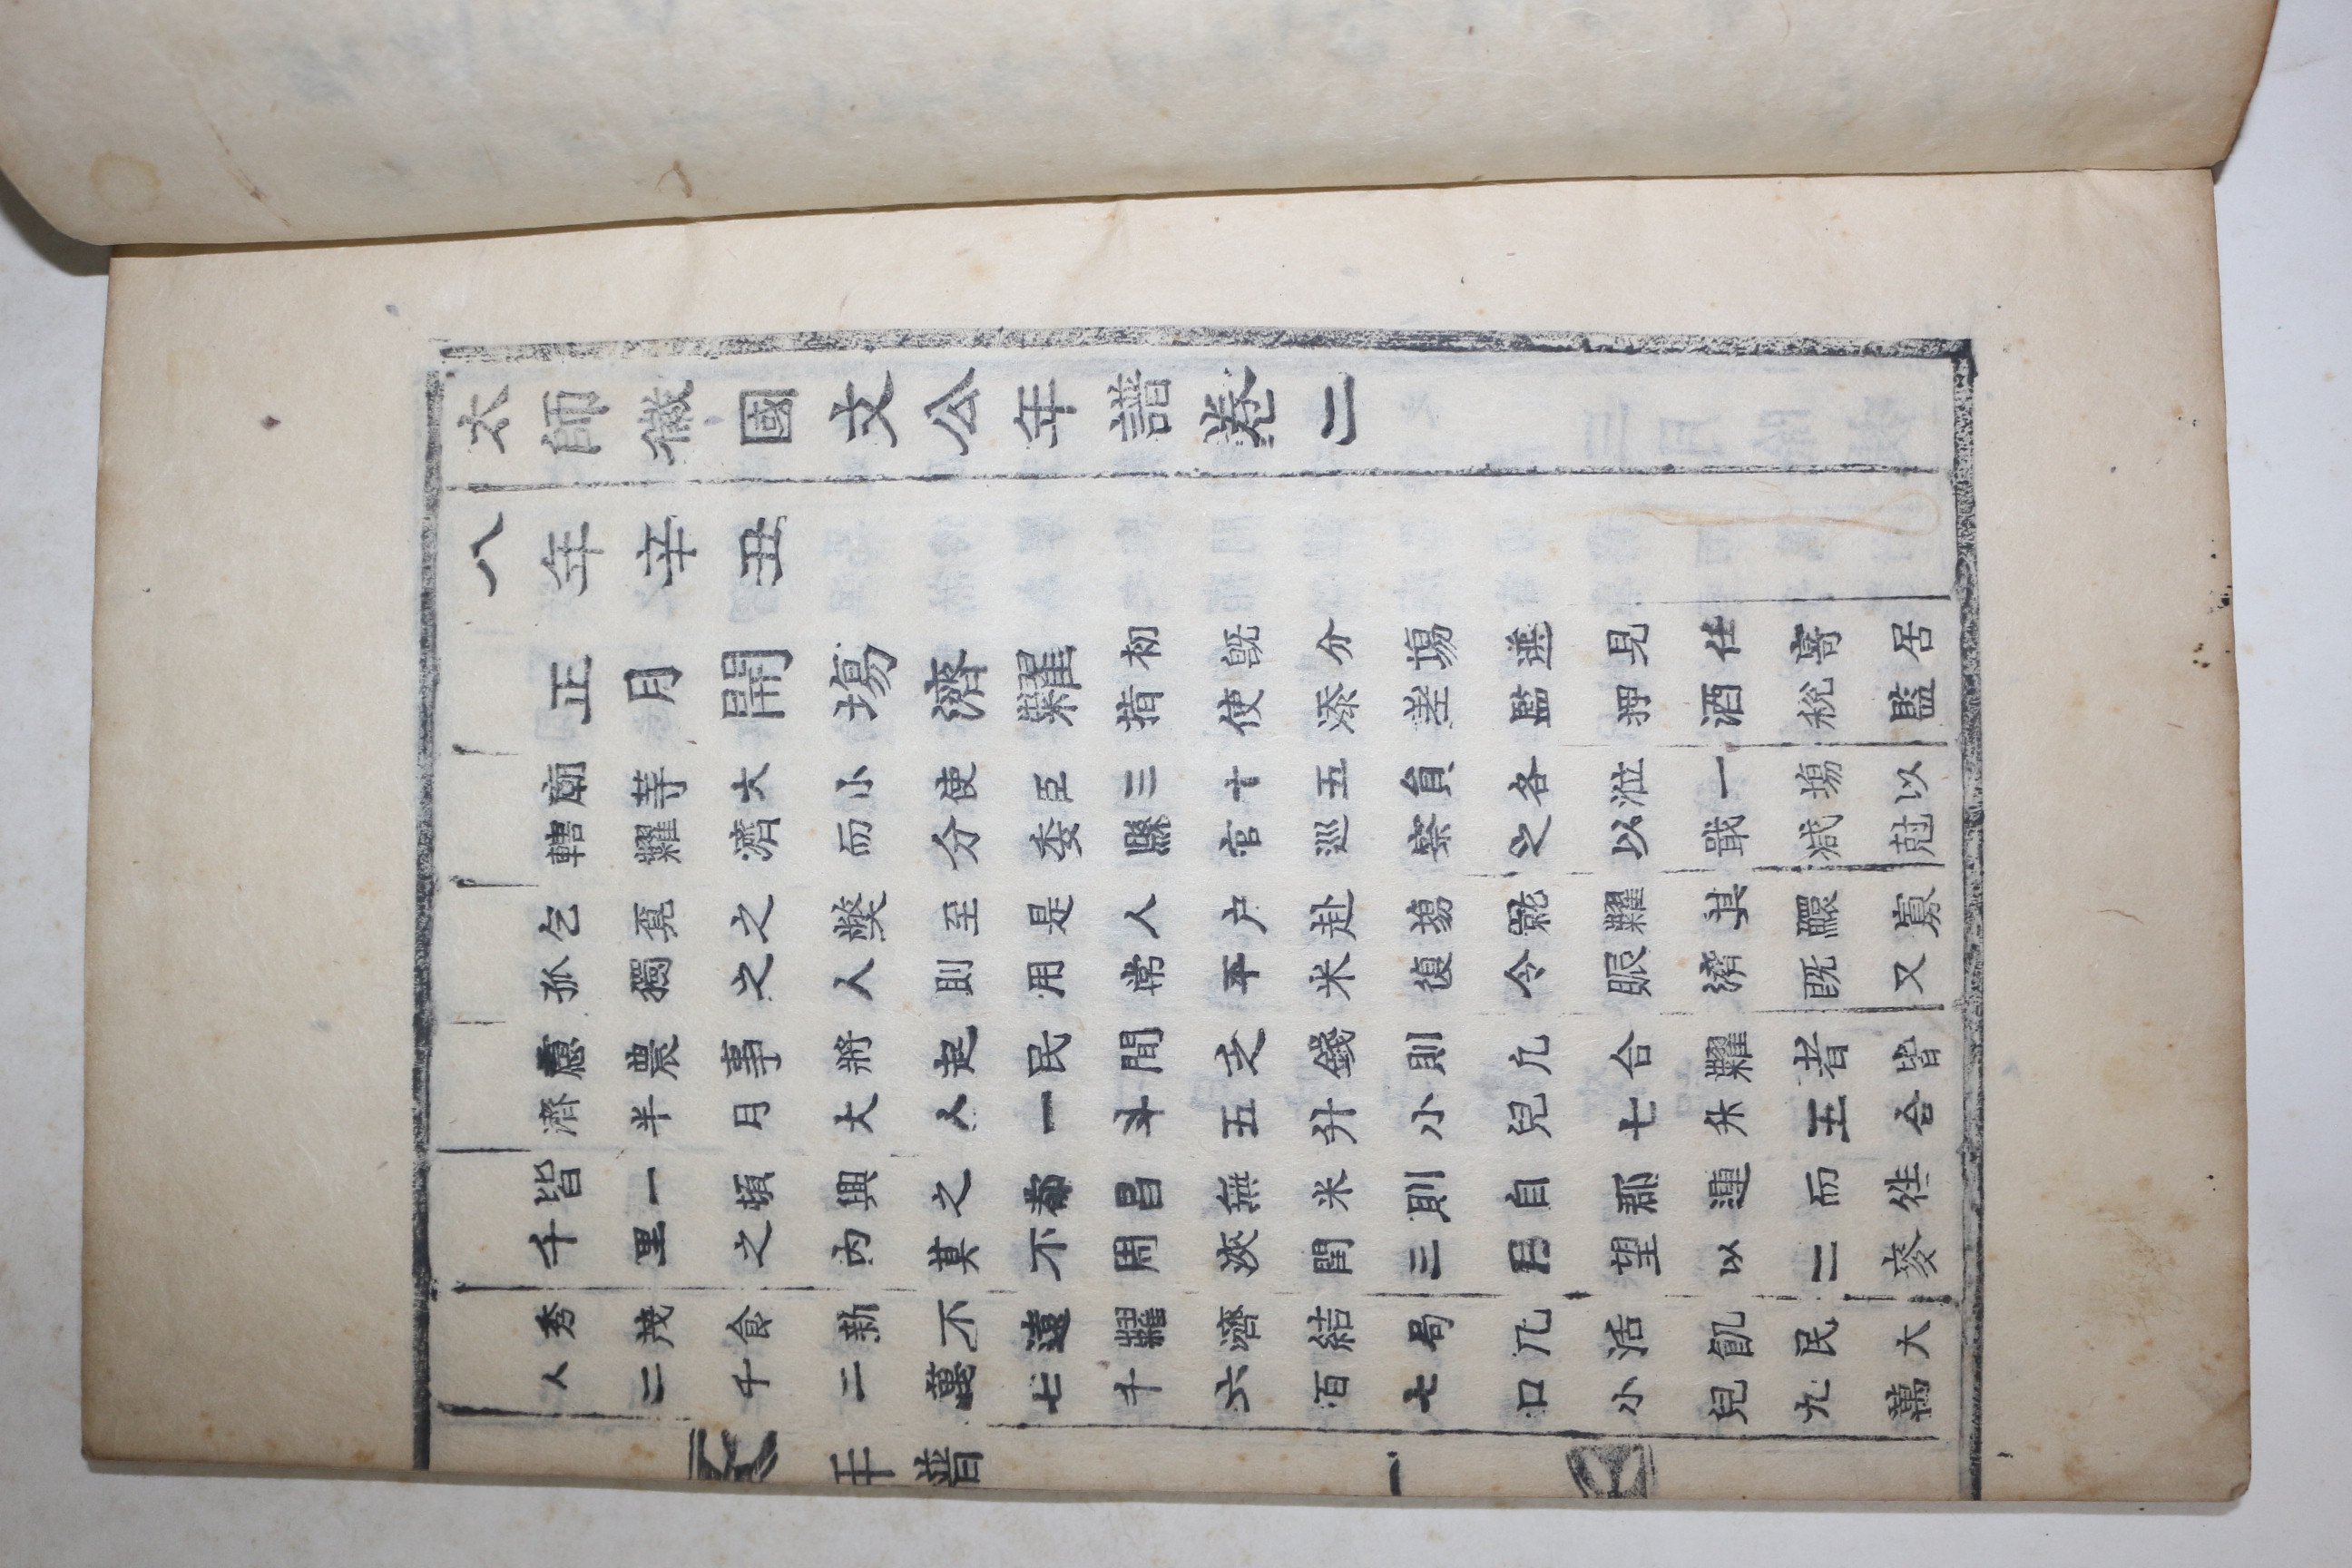 太師徽國文公年譜卷二
八年辛丑
正月開塲濟糶
初旣分塲選見任寄居
指使添差監押酒稅監
廟等大小使臣三十五員各涖一塲以
轄糶濟而分委縣官巡察之以戢减尅
乞覔之獘至是人户赴塲就糶其鰥寡
孤獨之人則用常平米復令賑濟旣又
慮農事將起民間乏錢則凢合糶者皆
濟半月大人一斗五升小兒七升五合
皆一頓興之都昌無米則自郡運而徃
千里之內莫不周浹閏三月望以二麥
秀茂食新不遠糶濟結局凢活飢民大
人二千二萬七千六百七口小兒九萬
年譜
一